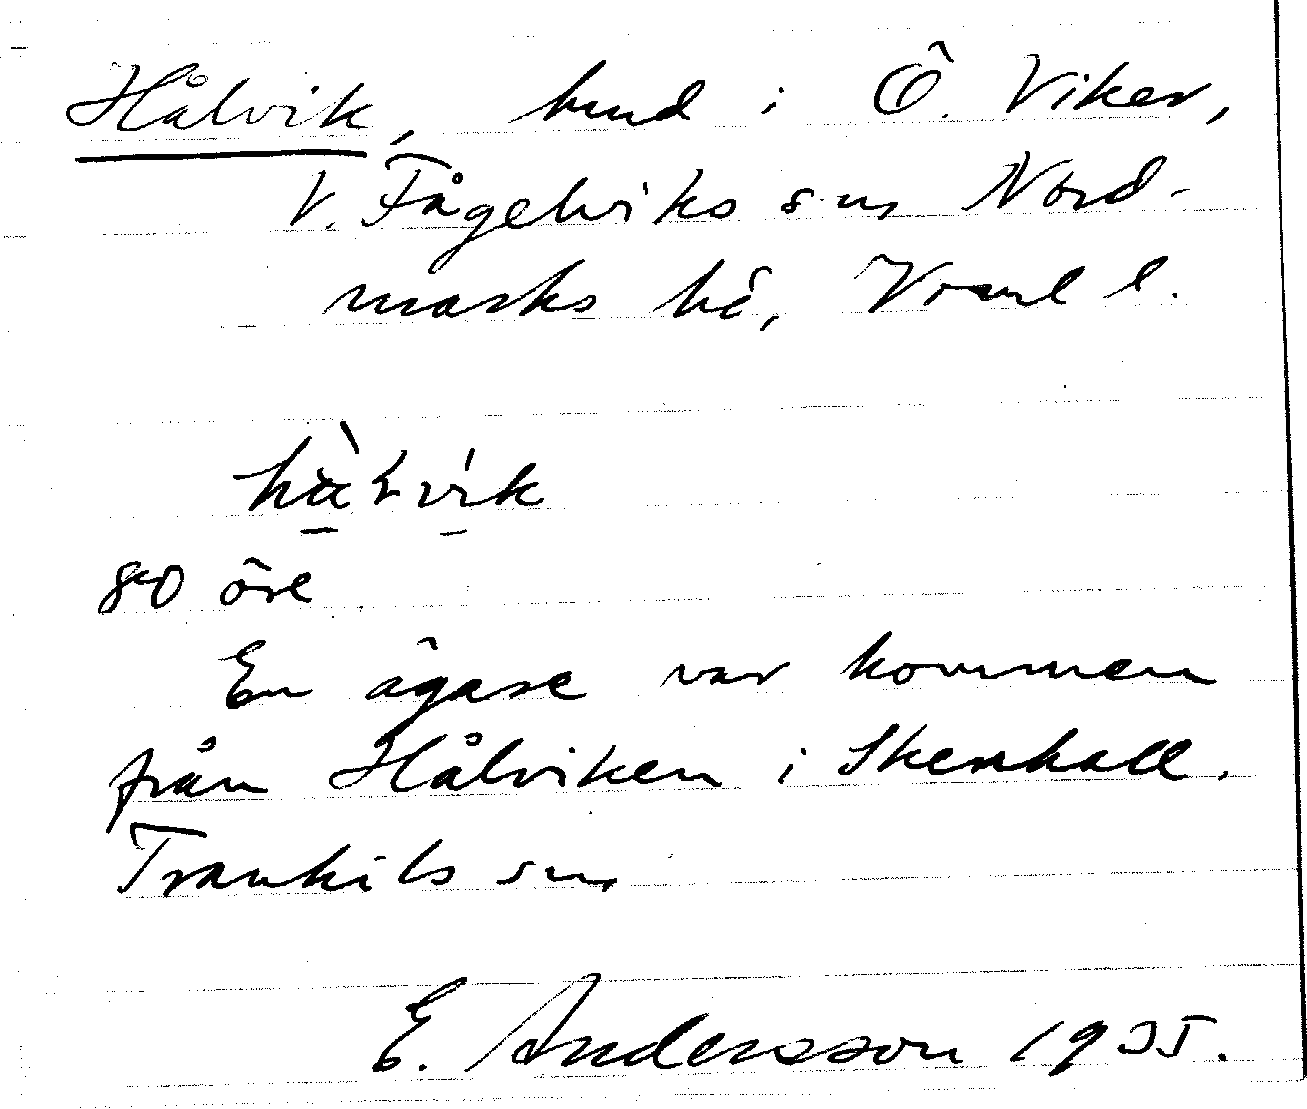 Hålvik, hmd i Ö. Viker,
V. Fågelviks sn, Nord-
marks hd, Vrml l.
hàlvik
80 öre
En ägare var kommen
från Hålviken i Skenhall.
Trankils sn.
E. Andersson 1955.